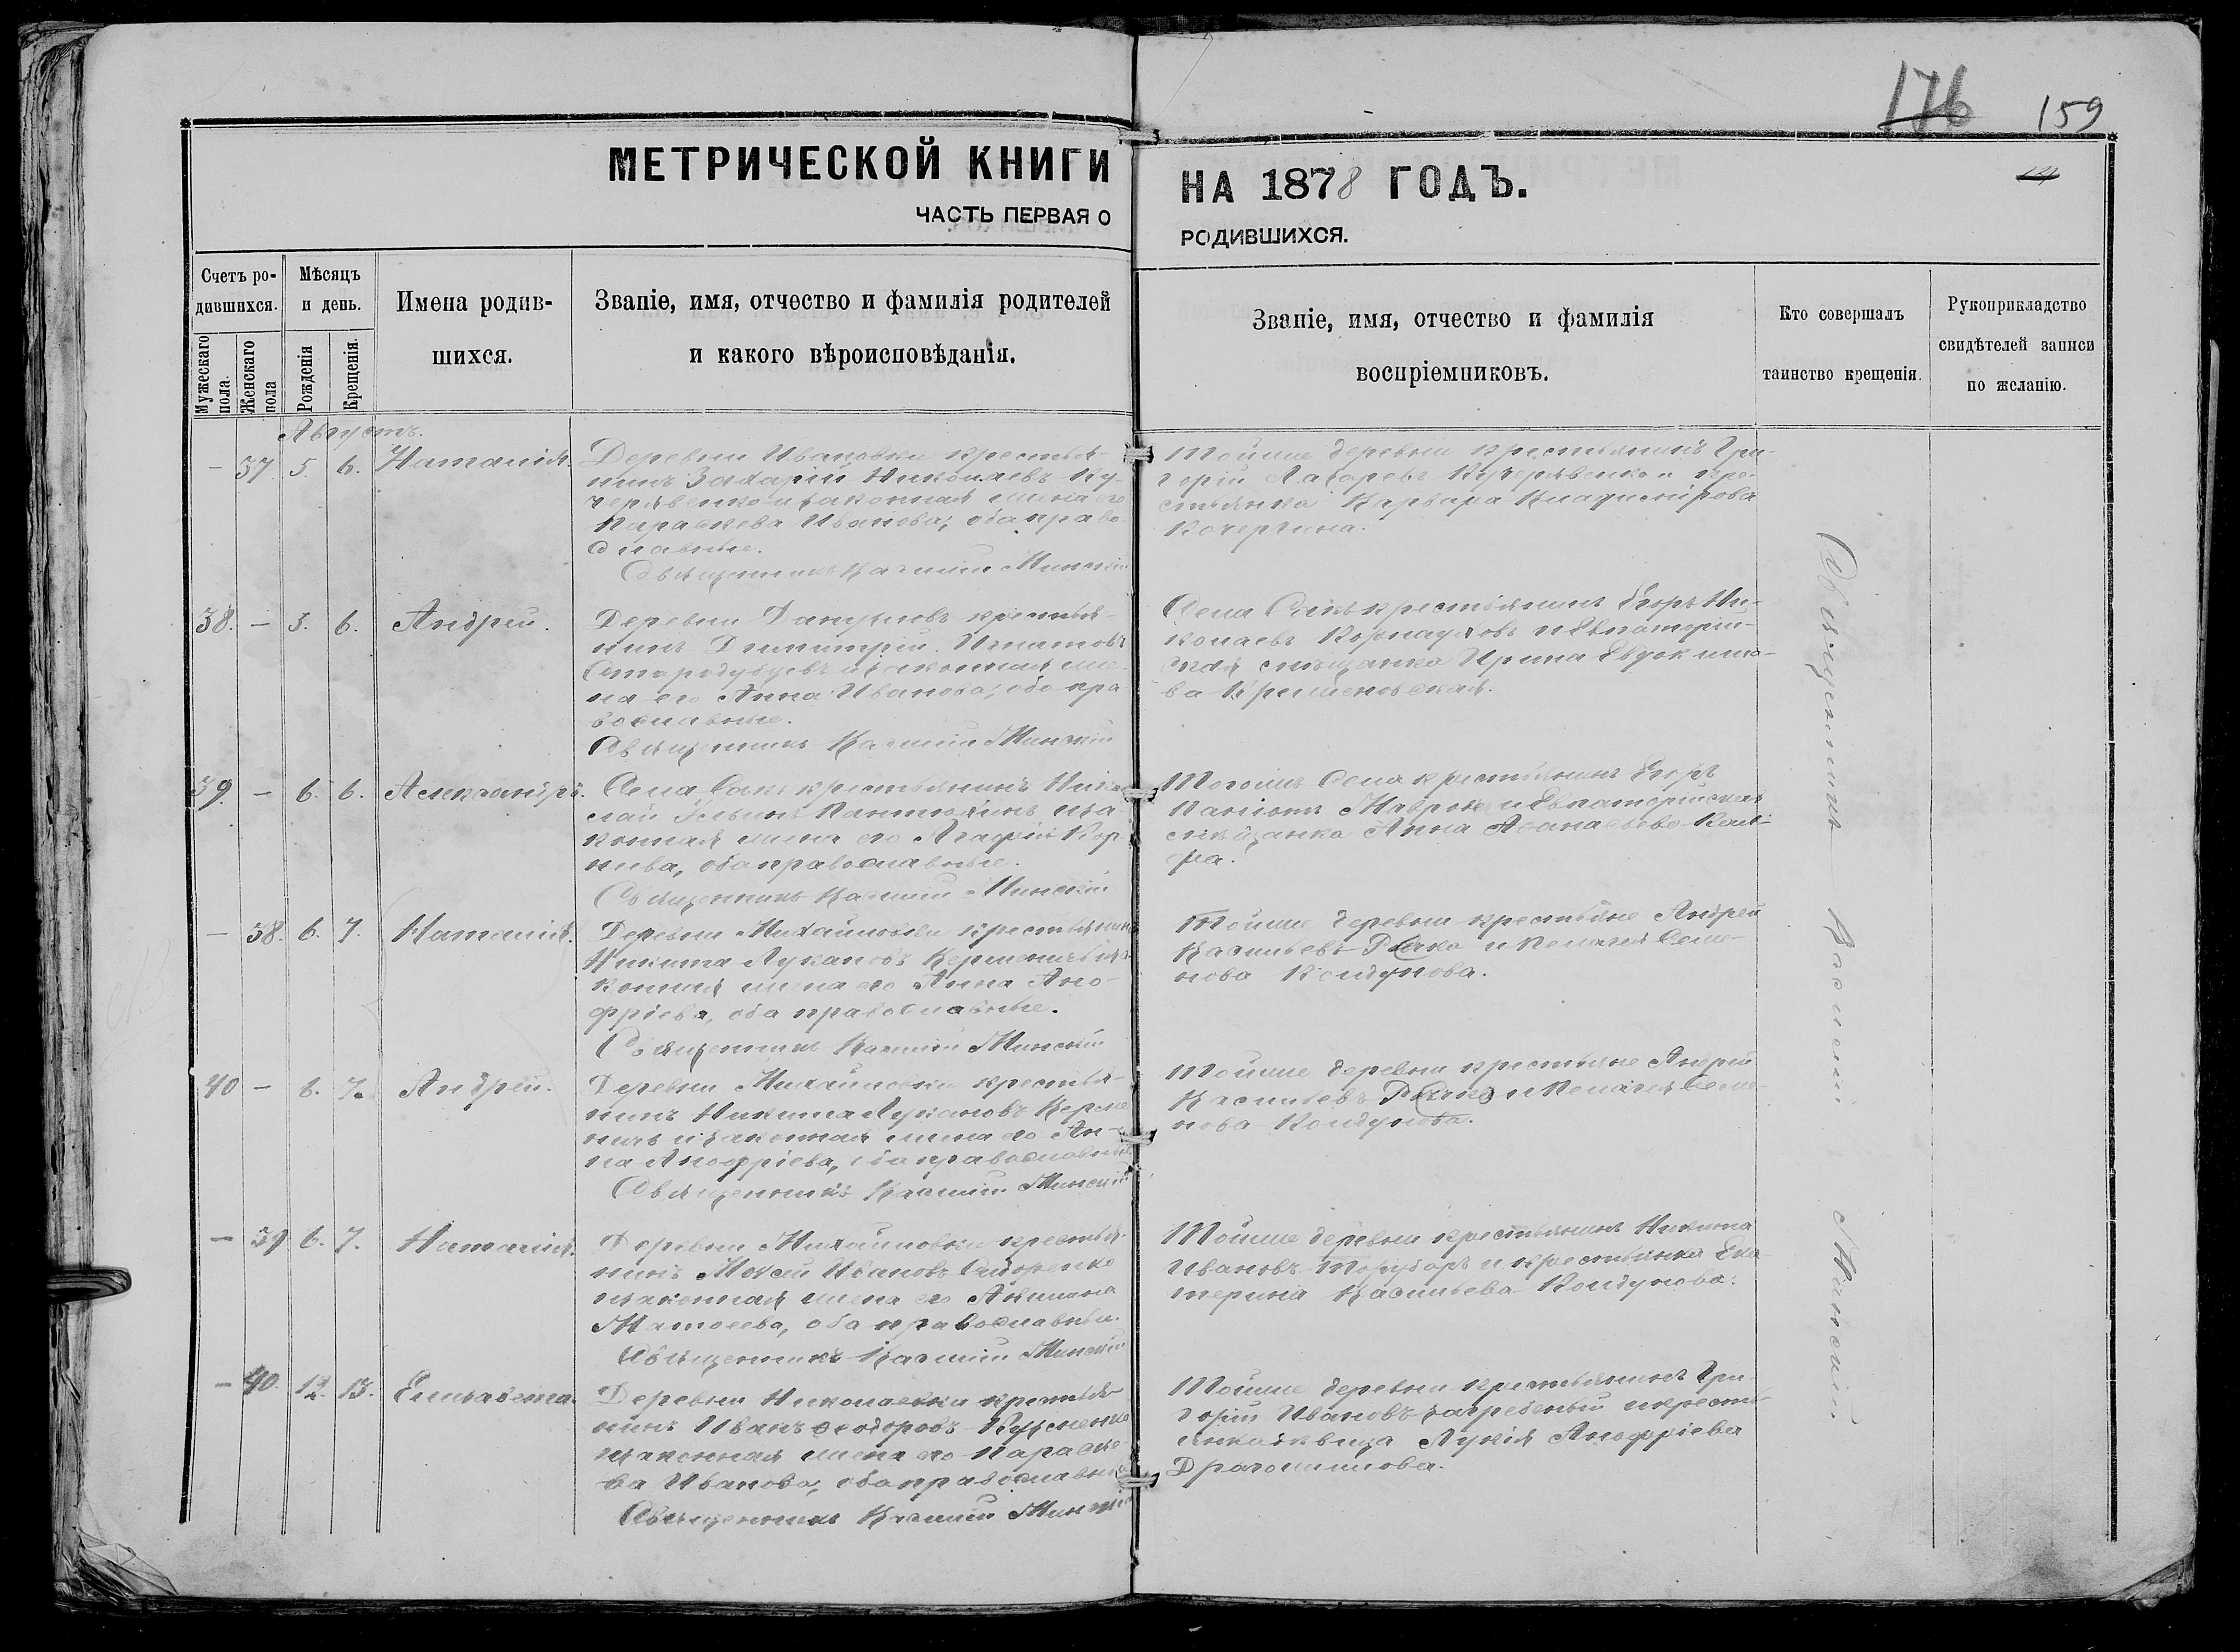 176 159
МЕТРИЧЕСКОЙ КНИГИ НА 1878 ГОДЪ.
ЧАСТЬ ПЕРВАЯ О РОДИВШИХСЯ.
Счетъ ро-
дившихся.
Мужескаго
пола.
Женскаго
пола
Мѣсяцъ
и день.
Рожденія
Крещенія.
Имена родив-
шихся.
Званіе, имя, отчество и фамилія родителей
и какого вѣроисповѣданія.
Званіе, имя, отчество и фамилія
воспріемниковъ.
Кто совершалъ
таинство крещенія.
Рукоприкладство
свидѣтелей записи
по желанію.
Августъ.
— 37 5. 6. Наталія.
Деревни Ивановки крестья-
нинъ Захарій Николаевъ Ку-
черявенко и законная жена его
Параскева Иванова; оба право-
славные.
Священникъ Василій Минскій
Тойже деревни крестьянинъ Гри-
горій Лазаревъ Кучерявенко и кре-
стьянка Варвара Владимірова
Кочергина.
38. — 5. 6. Андрей.
Деревни крестья-
нинъ Димитрій Игнатовъ
Стародубцевъ и законная же-
на его Анна Иванова; оба пра-
вославные.
Священникъ Василій Минскій
Села Сакъ крестьянинъ Егоръ Ни-
колаевъ и Евпаторій-
ская мѣщанка Ирина Евдокимо-
ва
39. — 6. 6. Александръ.
Села Сакъ крестьянинъ
Ильинъ и за-
конная жена его Агафія
оба православные.
Священникъ Василій Минскій
Тогоже села крестьянинъ Егоръ
и Евпаторійская
мѣщанка Анна Аѳанасьева
— 38. 6. 7. Наталія.
Деревни Михайловки крестьянинъ
Никита Лукановъ и за-
конная жена его Анна Ано-
фріева, оба православные.
Священникъ Василій Минскій
Тойже деревни крестьяне Андрей
Васильевъ и Пелагея Семе-
нова Колдунова.
40 — 6. 7. Андрей.
Деревни Михайловки крестья-
нинъ Никита Лукановъ
и законная жена его Ан-
на Анофріева, оба православные
Священникъ Василій Минскій
Тойже деревни крестьяне Андрей
Васильевъ и Пелагея Семе-
нова Колдунова.
— 39 6. 7. Наталія.
Деревни Михайловки крестья-
нинъ Ивановъ Сидоренко
и законная жена его Акилина
оба православные.
Священникъ Василій Минскій
Тойже деревни крестьянинъ Никита
Ивановъ и крестьянка Ека-
терина Васильева Колдунова.
— 40. 12. 13. Елисавета.
Деревни Николаевки крестья-
нинъ Иванъ Ѳеодоровъ
и законная жена его Параске-
ва Иванова, оба православные
Священникъ Василій Минскій
Тойже деревни крестьянинъ Гри-
горій Ивановъ и кресть-
янка Анофріева
Священникъ Василій Минскій